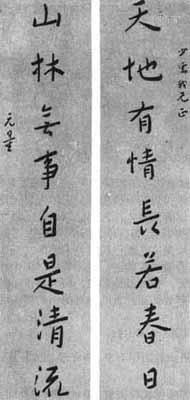 天地有情長若春日
山林無事自是清流
元量